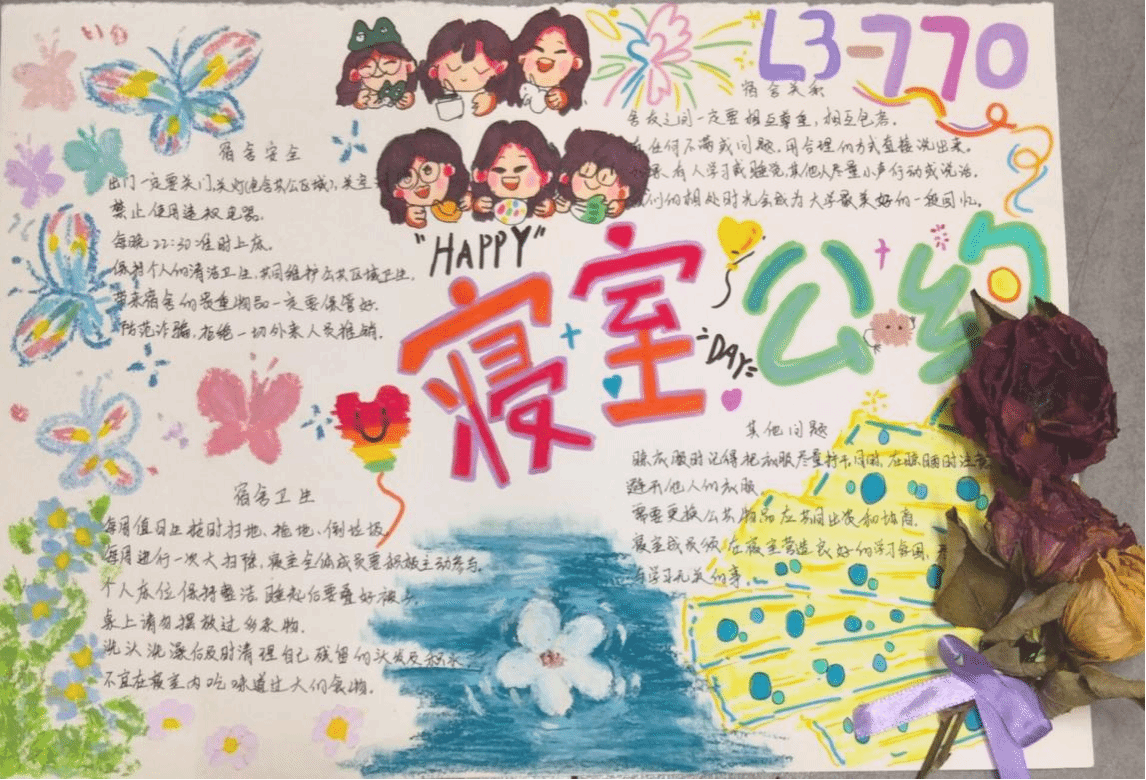 L3-770
"HAPPY"
寝室公约
DAY
宿舍安全
出门一定要关门、关灯(包含公共区域)、关空
禁止使用违规电器。
每晚22:30准时上床。
保持个人的清洁卫生,共同维护公共区域卫生.
带来宿舍的贵重物品一定要保管好.
防范诈骗,拒绝一切外来人员推销.
宿舍卫生
每周值日生按时扫地、拖地、倒垃圾
每周进行一次大扫除,寝室全体成员要积极主动参与.
个人床位保持整洁 睡起后要叠好被
桌上请勿摆放过多杂物.
洗头洗澡后及时清理自己残留的头发及积水
不宜在寝室内吃味道过大的食物.
宿舍关系
舍友之间一定要相互尊重,相互包容。
任何不满或问题,用合理的方式直接说出来。
有人学习或睡觉,其他人尽量小声行动或说话.
们的相处时光会成为大学最美好的一段回忆。
其他问题
晾衣服时记得把衣服尽量拧干,同时,在晾晒时注意
避开他人的衣服
需要更换公共物品应共同出资和协商.
寝室成员须在寝室营造良好的学习氛围,
与学习无关的事.